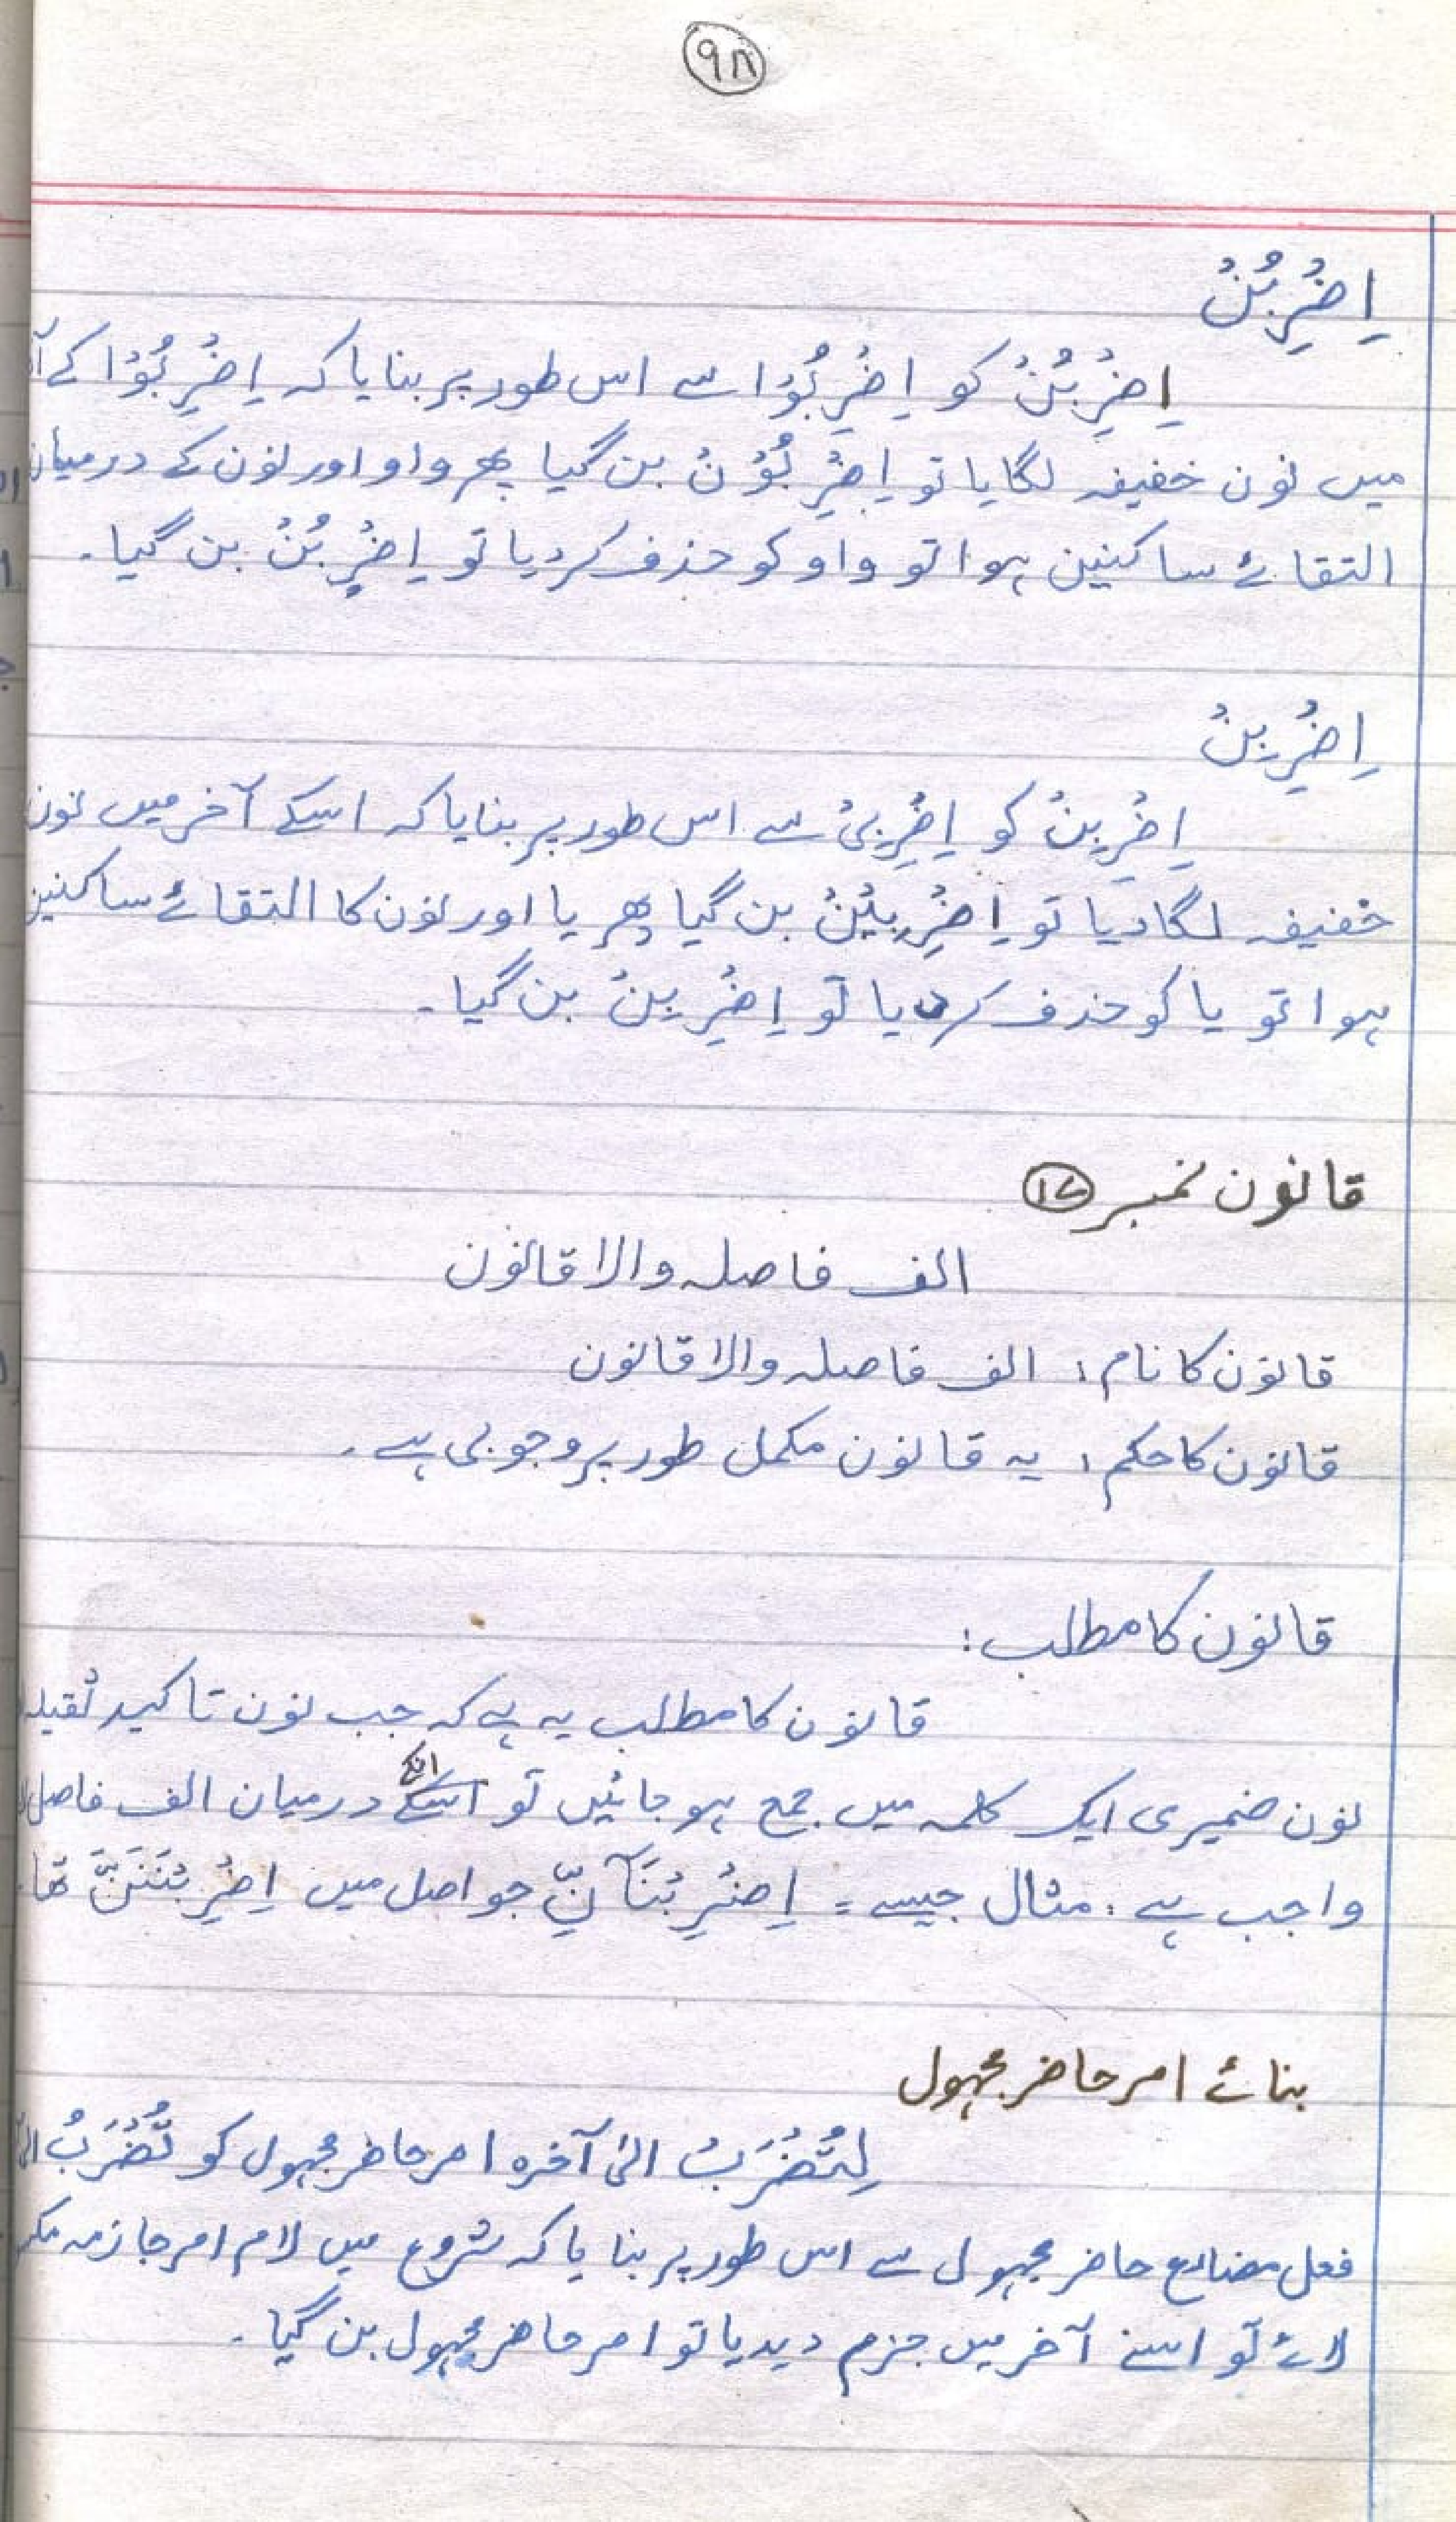 ۹۸
اِضْرِبُنْ
اِضْرِبُنْ کو اِضْرِبُوْا سے اس طور پر بنایا کہ اِضْرِبُوْا کے
میں نون خفیفہ لگایا تو اِضْرِبُوْنْ بن گیا پھر واو اور نون کے درمیان
التقائے ساکنین ہوا تو واو کو حذف کردیا تو اِضْرِبُنْ بن گیا۔
اِضْرِبِنْ
اِضْرِبِنْ کو اِضْرِبِیْ سے اس طور پر بنایا کہ اسکے آخر میں نون
خفیفہ لگادیا تو اِضْرِبِیْنْ بن گیا پھر یا اور نون کا التقائے ساکنین
ہوا تو یا کو حذف کردیا تو اِضْرِبِنْ بن گیا۔
قانون نمبر ۱۷
الف فاصلہ والا قانون
قانون کا نام: الف فاصلہ والا قانون
قانون کا حکم: یہ قانون مکمل طور پر وجوبی ہے۔
قانون کا مطلب:
قانون کا مطلب یہ ہے کہ جب نون تاکید ثقیلہ
نون ضمیری ایک کلمہ میں جمع ہو جائیں تو انکے درمیان الف فاصل
واجب ہے: مثال جیسے = اِضْرِبْنَآنِّ جو اصل میں اِضْرِبْنَنَّ تھا۔
بنائے امر حاضر مجہول
لِتُضْرَبْ الیٰ آخرہ امر حاضر مجہول کو تُضْرَبُ
فعل مضارع حاضر مجہول سے اس طور پر بنایا کہ شروع میں لام امر جازمہ
لائے تو اسنے آخر میں جزم دیدیا تو امر حاضر مجہول بن گیا۔